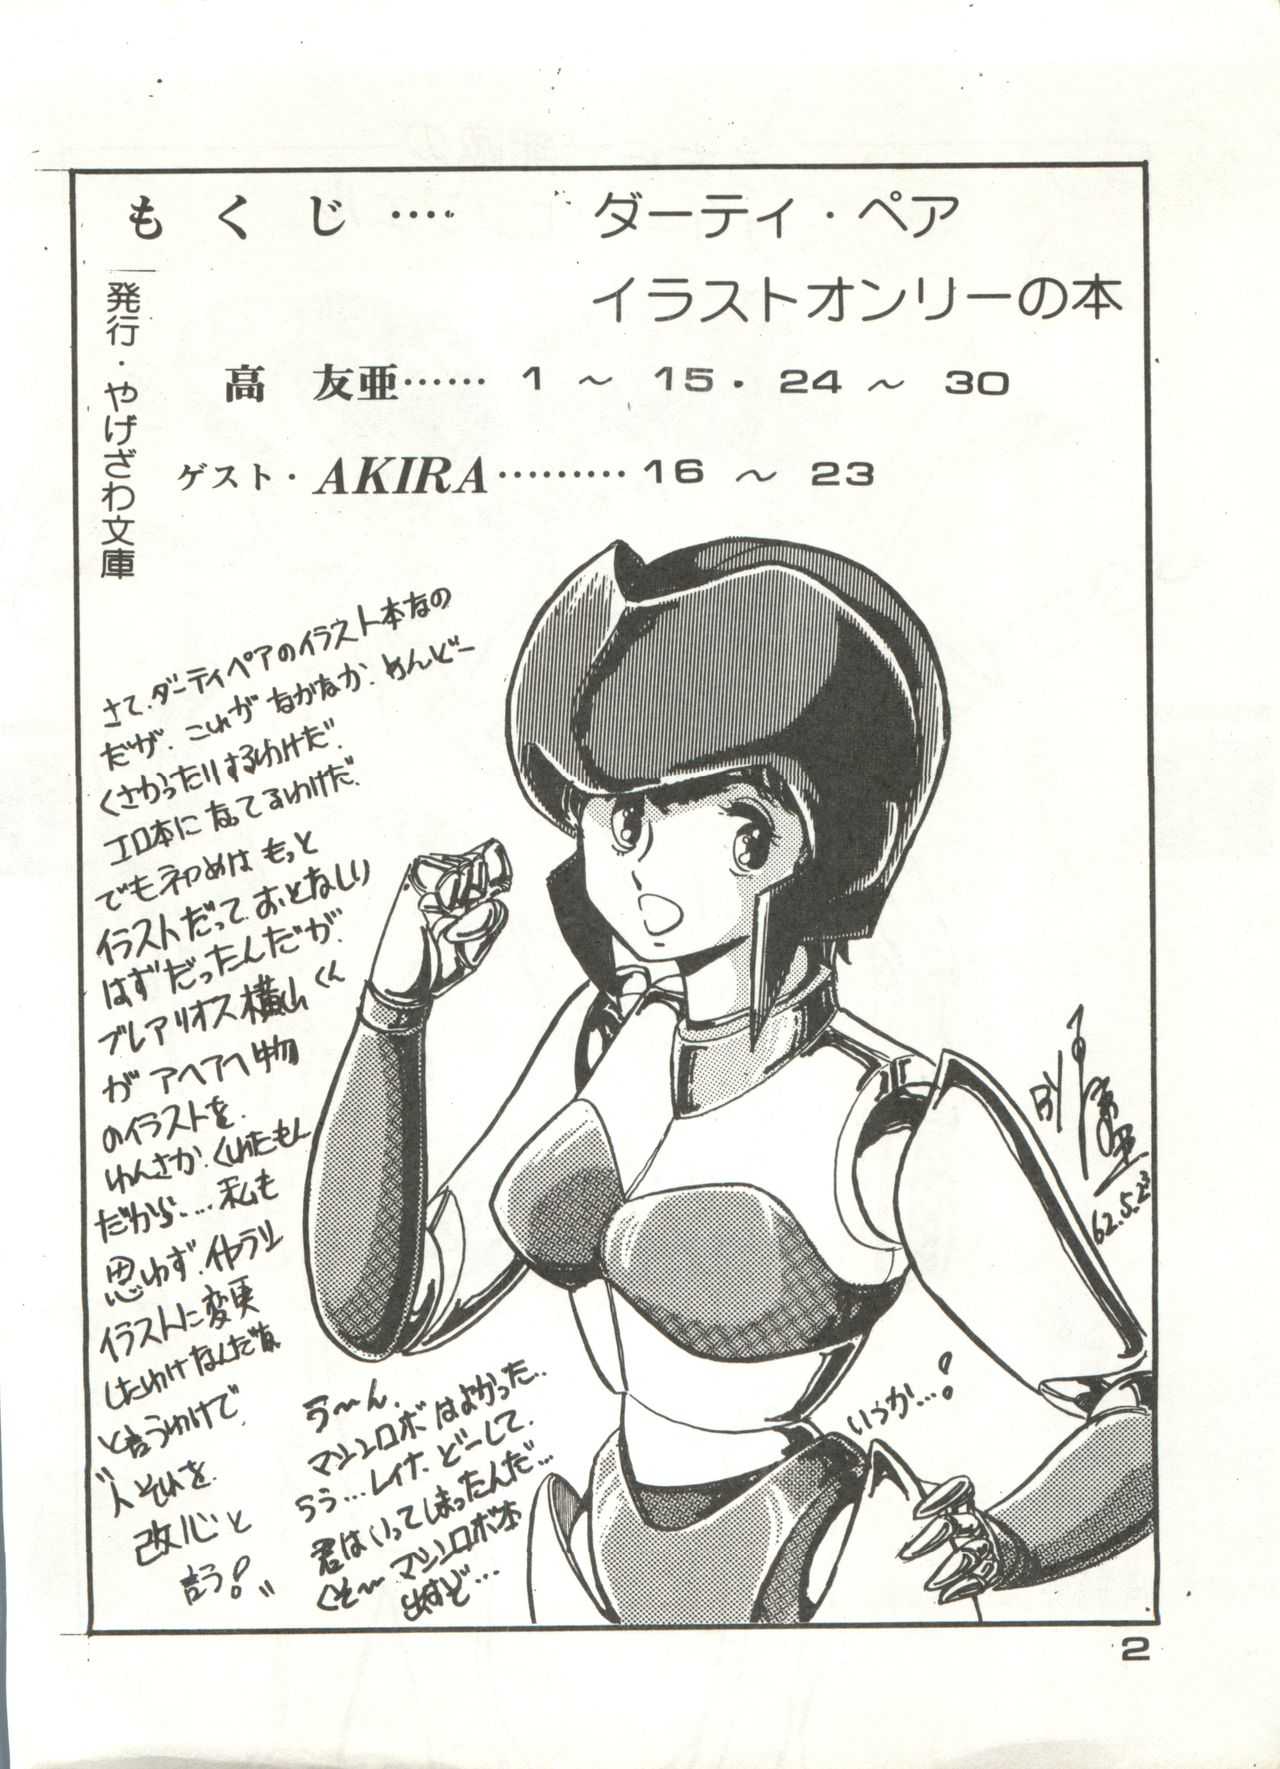 もくじ‥‥
ダーティ・ペア
イラストオンリーの本
発行・やげざわ文庫
高　友亜…… 1 ～ 15・24 ～ 30
ゲスト・AKIRA……… 16 ～ 23
さて、ダーティペアのイラスト本なの
だが、これがなかなか、めんどー
くさかったりするわけだ、
エロ本になってるわけだ、
でもネ初めはもっと
イラストだって、おとなしい
はずだったんだが、
ブレアリオス横山くん
がアヘアヘ物
のイラストを、
わんさか、くれたもん
だから……私も
思わず、イヤラシー
イラストに変更
したわけなんだな
と言うわけで、
〝人それを
改心と
言う！〟
う～～ん、
マシンロボはよかった‥
うう…レイナ、どーして、
君はいってしまったんだ…
くそ～～マシンロボ本
出すど…
いつか…！
BY
62.5.23
2